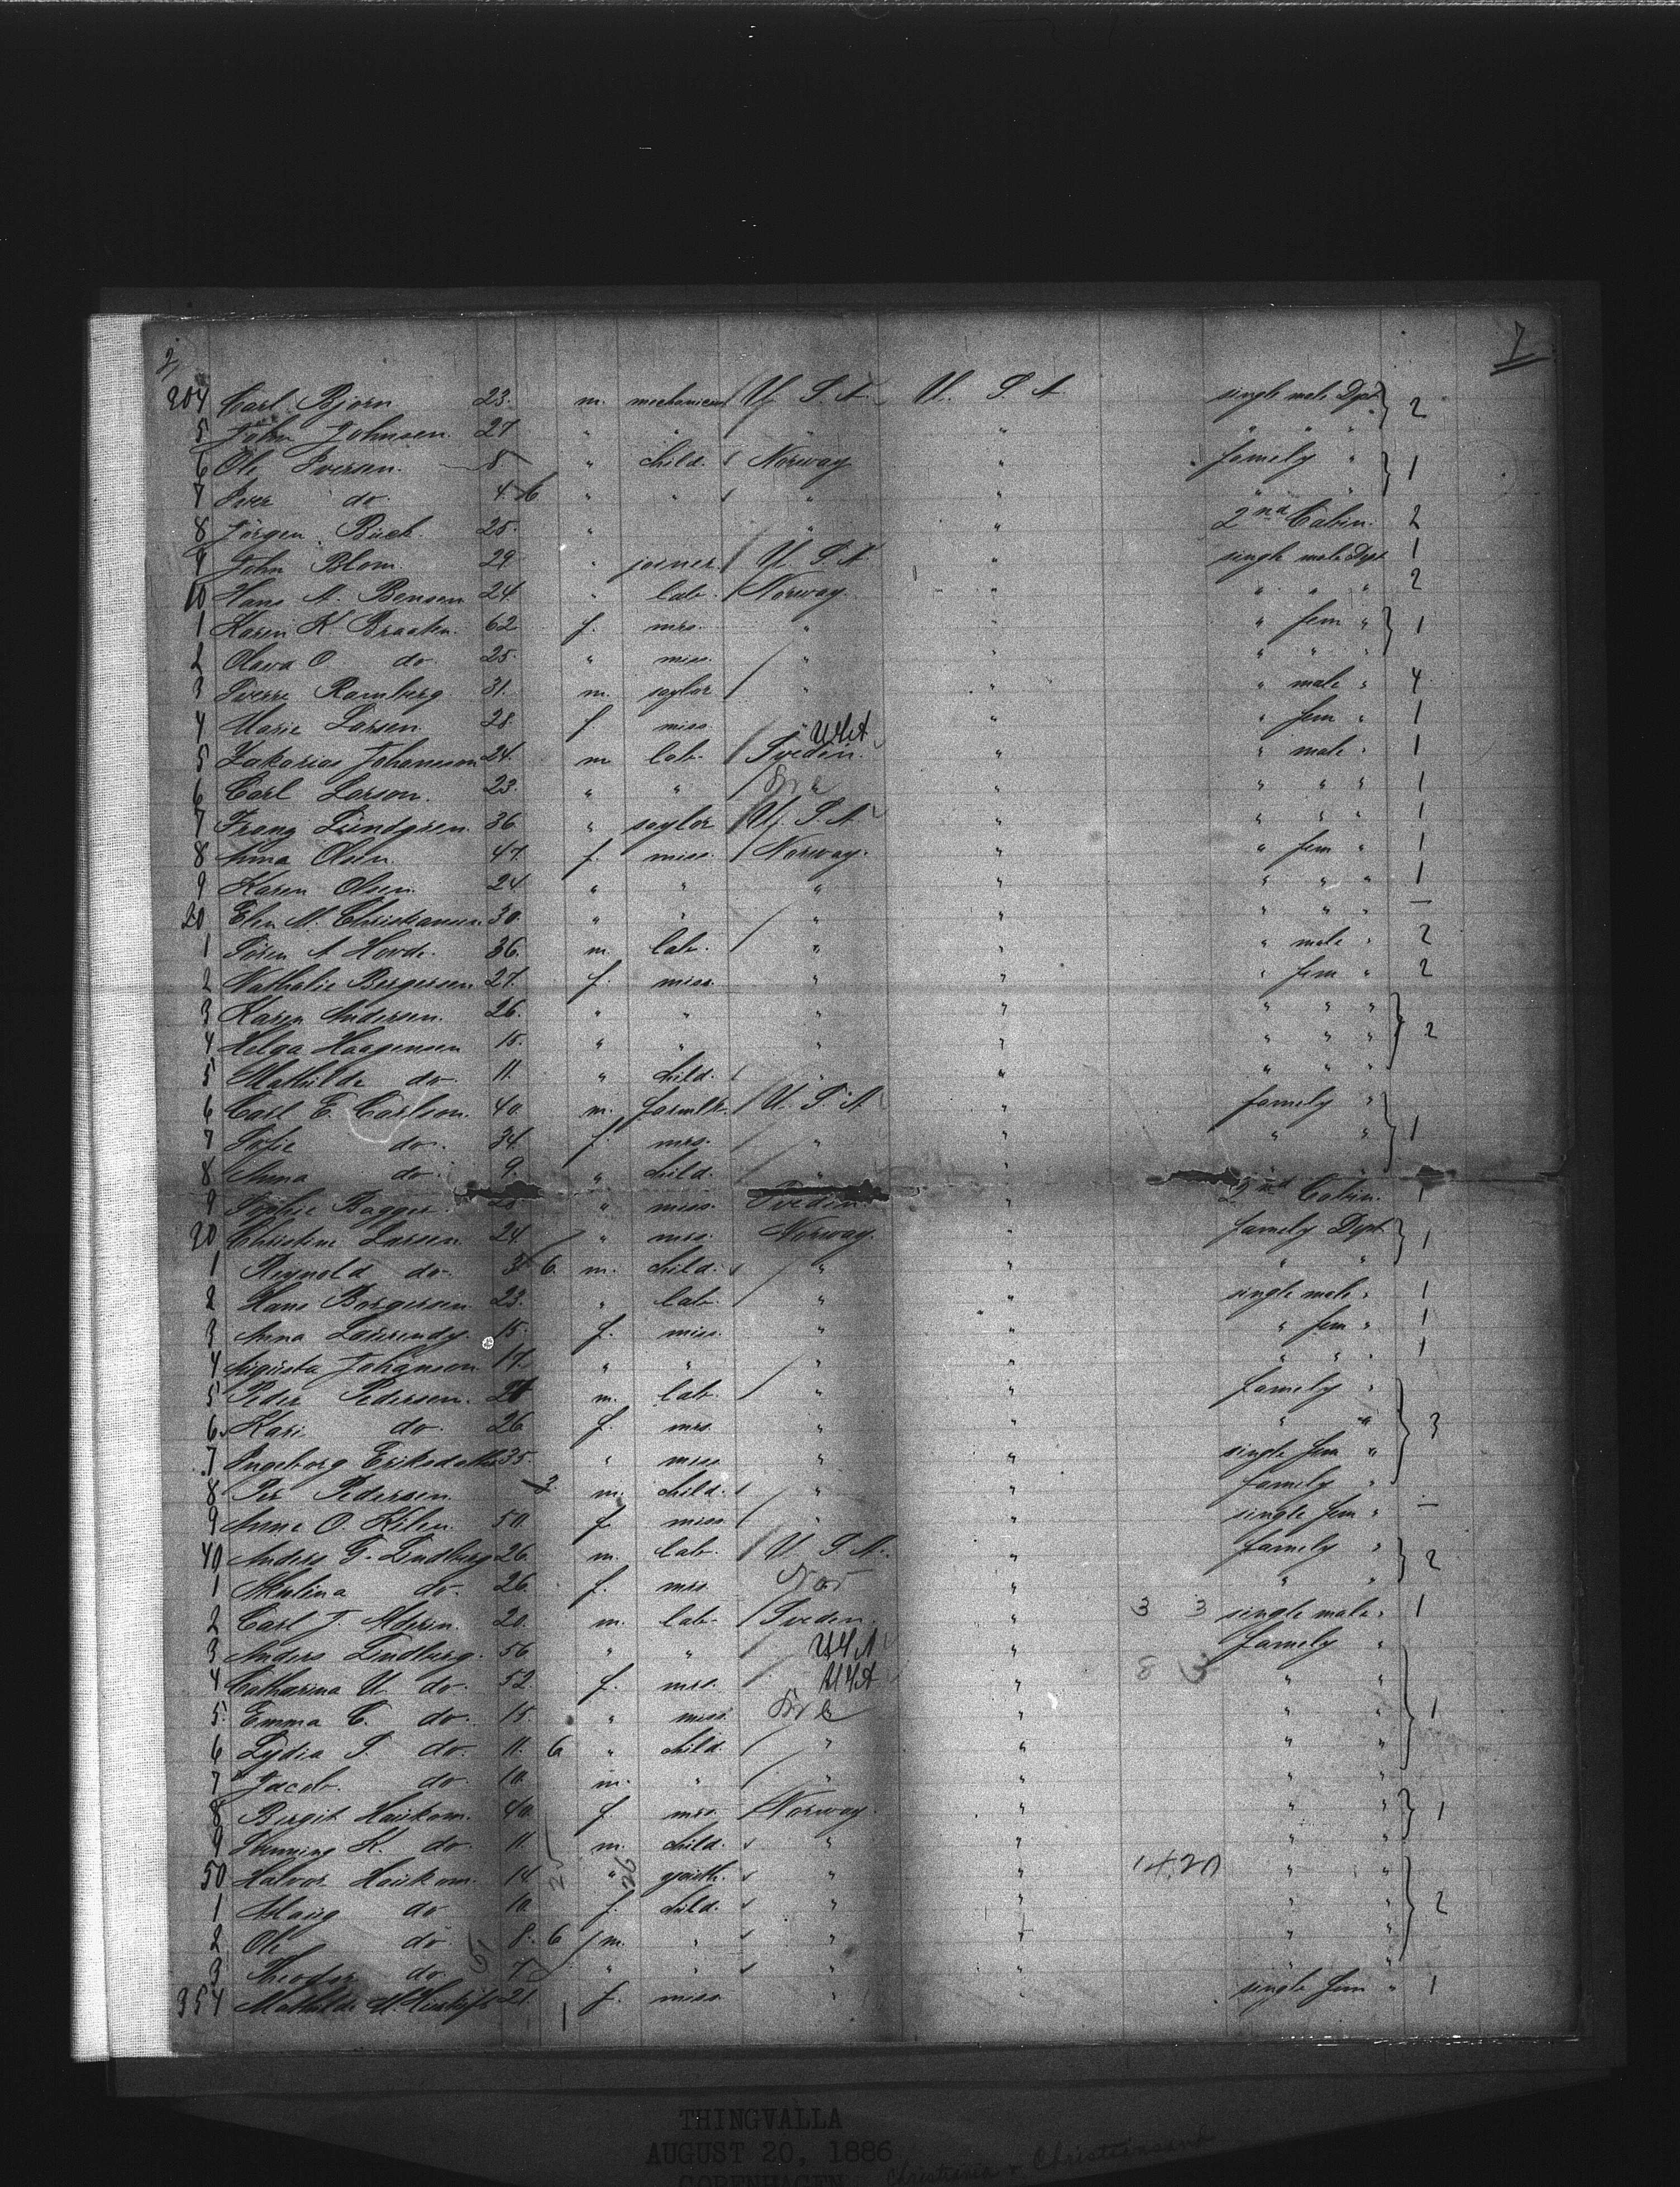 7
204 Carl Bjorn 23. m. mechanicus U. S. A. U. S. A. single male Dpt. 2
5 John Johnsen. 27 " " " " " " "
6 Ole Iversen. 5 " child. Norway " family " 1
7 Iver do 4. 6 " " " " " "
8 Jörgen Buch. 25. " " " 2nd Cabin. 2
9 John Blom. 29 " joener. U. S. A. " single male Dept 1
10 Hans A. Bensen 24 " lab. Norway. " " " " 2
1 Karen K Braaten. 62 f. mrs. " " " fem " 1
2 Olava O do 25. " miss. " " " " "
3 Sverre Ramberg 31. m. saylor " " " male " 4
4 Marie Larsen. 28. f. miss " " " fem " 1
5 Zakarias Johansson 24. m lab. Sveden. USA " " male " 1
6 Carl Larson. 23. " " " " " " 1
7 Franz Lundgren. 36 " saylor U. S. A. " " " " 1
8 Anna Olsen. 47. f. miss. Norway. " " fem " 1
9 Karen Olsen. 24 " " " " " " " 1
20 Elen M. Christiansen 30. " " " " " " " —
1 Sören A Hovde. 36. m. lab. " " " male " 2
2 Nathalie Bergersen 27. f. miss. " " " fem " 2
3 Karen Andersen. 26. " " " " " " "
4 Helga Haagensen 15. " " " " " " " 2
5 Mathilde do. 11. " child. " " " " "
6 Carl E. Carlson. 40 m. U. S. A. " family "
7 Sofie do. 34. f. mrs. " " " " 1
8 Anna do 9. " child. " "
9 Sophie Bagger. 28 " miss. Sveden. " 2nd Cabin. 1
Christine Larsen 24. " mrs. Norway. " family Dept 1
1 Reynold do. 3 6. m. child. " " " "
2 Hans Borgersen 23. " lab. " " single male " 1
3 Anna 15. f. miss. " " " fem " 1
4 Augusta Johanson 17. " " " " " " " 1
5 Peder Pedersen. m. lab. " " family "
6 Kari do. 26 f. mrs " " " " 3
7 Ingeborg 35. " miss " " single fem "
8 Per Pedersen. 3 m. child. " " family "
9 Anne O. Kilen. 50. f. miss " " single fem " —
40 Anders G. Lindberg 26. m. lab. U. S. A. " family " 2
1 do. 26. f. mrs. Nor " " "
2 Carl J. 20. m. lab. Sveden. " 3 3 single male " 1
3 Anders Lindberg. 56 " " USA " family "
4 Catharina U. do. 52. f. mrs. USA " 8 " "
5. Emma C. do. 15. " miss. " " " 1
6 Lydia S. do. 11. 6 " child. " " " "
7 Jacob. do. 10. m. " " " " "
8 Birgit Haukom. 40. f. mrs. Norway. " " " 1
9 Henning K. do. 11. m. child. " " " "
50 Halvor Haukom. 14. " youth. " " 14.20 " "
1 do 10 f. child. " " " " 2
2 Ole do. 8. 6 m. " " " "
3 Theodor do. 7 " " " " "
354 Mathilde 21. f. miss. " " single fem " 1
25 26
THINGVALLA
AUGUST 20, 1886
COPENHAGEN Christiania & Christiansand